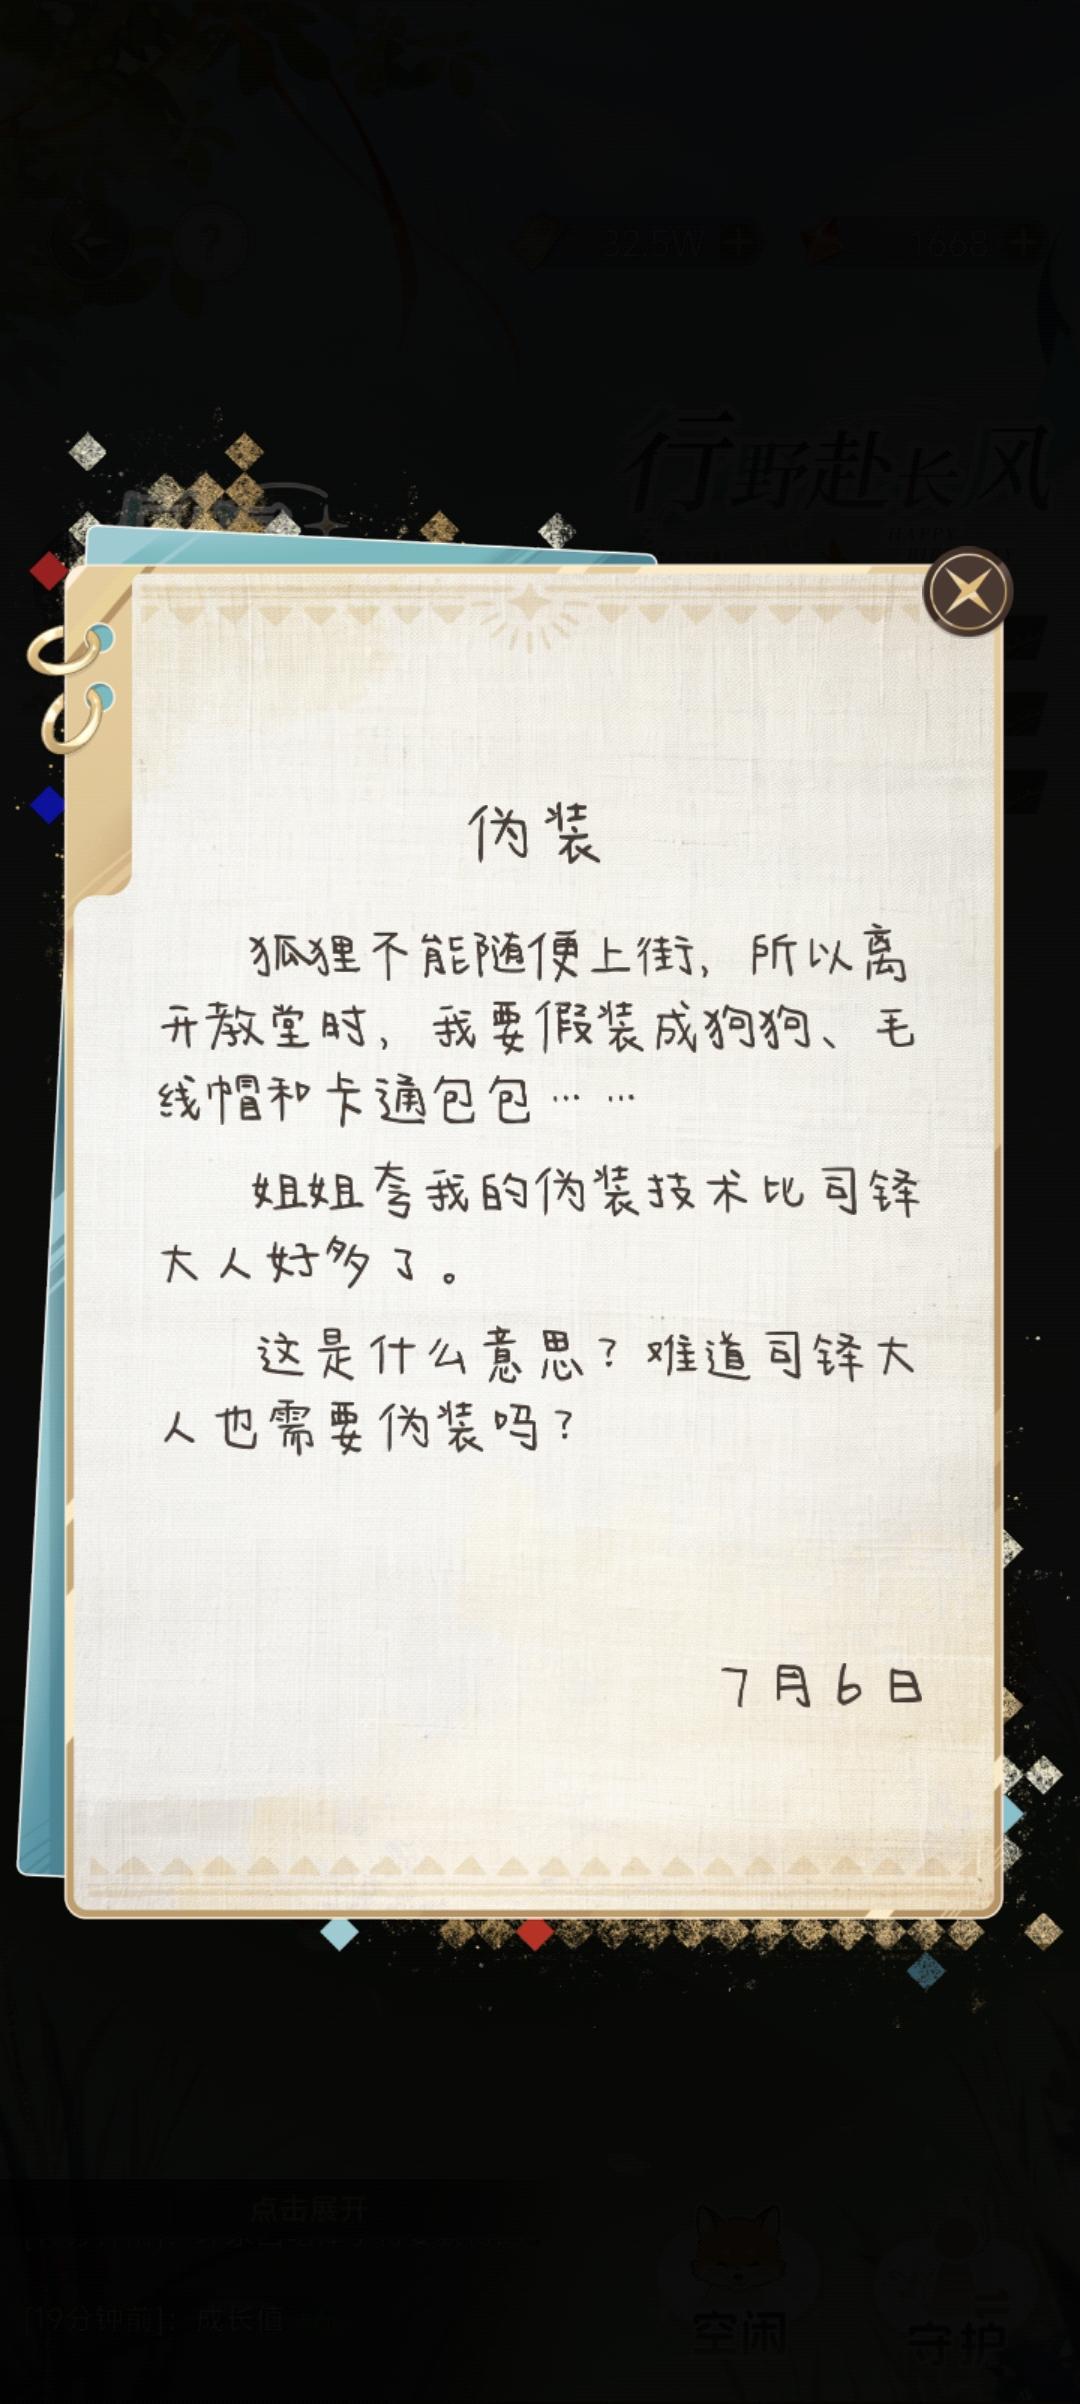 32.5W
1668
行野赴长风
HAPPY
伪装
狐狸不能随便上街，所以离
开教堂时，我要假装成狗狗、毛
线帽和卡通包包……
姐姐夸我的伪装技术比司铎
大人好多了。
这是什么意思？难道司铎大
人也需要伪装吗？
7月6日
点击展开
[19分钟前]：成长值
空闲
守护